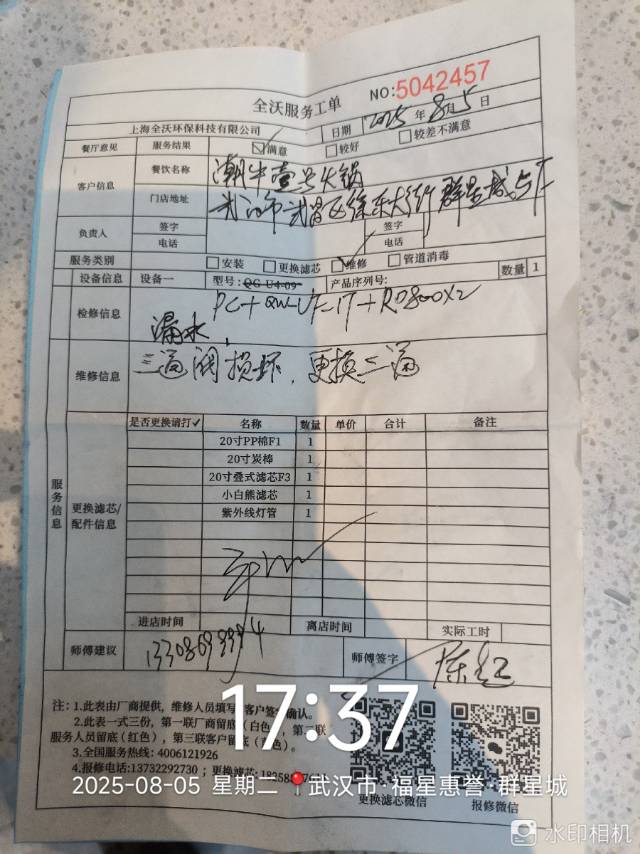 全沃服务工单 NO:5042457
上海全沃环保科技有限公司 日期 2025年8月5日
餐厅意见 服务结果 ☑满意 □较好 □较差不满意
客户信息 餐饮名称 潮牛壹号火锅
门店地址 武汉市武昌区徐东大街群星城5F
负责人 签字 签字
电话 电话
服务类别 □安装 □更换滤芯 ☑维修 □管道消毒
设备信息 设备一 型号: QG-U4-09 产品序列号: 数量 1
检修信息 PC+QW-UF-1T+RO800X2
漏水,
维修信息 三通阀损坏,更换三通
服务信息 更换滤芯/配件信息 是否更换请打✓ 名称 数量 单价 合计 备注
20寸PP棉F1 1
20寸炭棒 1
20寸叠式滤芯F3 1
小白熊滤芯 1
紫外线灯管 1
进店时间 离店时间 实际工时
师傅建议 师傅签字
注:1.此表由厂商提供,维修人员填写,客户签字确认。
2.此表一式三份,第一联厂商留底(白色),第二联
服务人员留底(红色),第三联客户留底
3.全国服务热线:4006121926
4.报修电话:13732292730;更换滤芯:
更换滤芯微信 报修微信
17:37
2025-08-05 星期二 武汉市·福星惠誉·群星城
水印相机